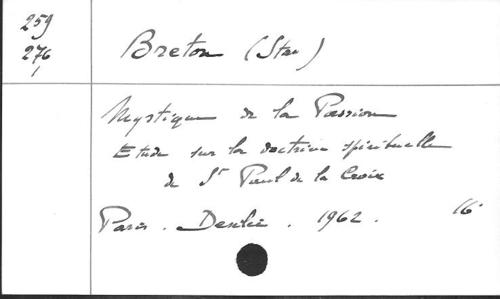 259
276
1
Breton (Stan)
Mystique de la Passion
Etude sur la doctrine spirituelle
de St Paul de la Croix
Paris. Desclée. 1962. 16°